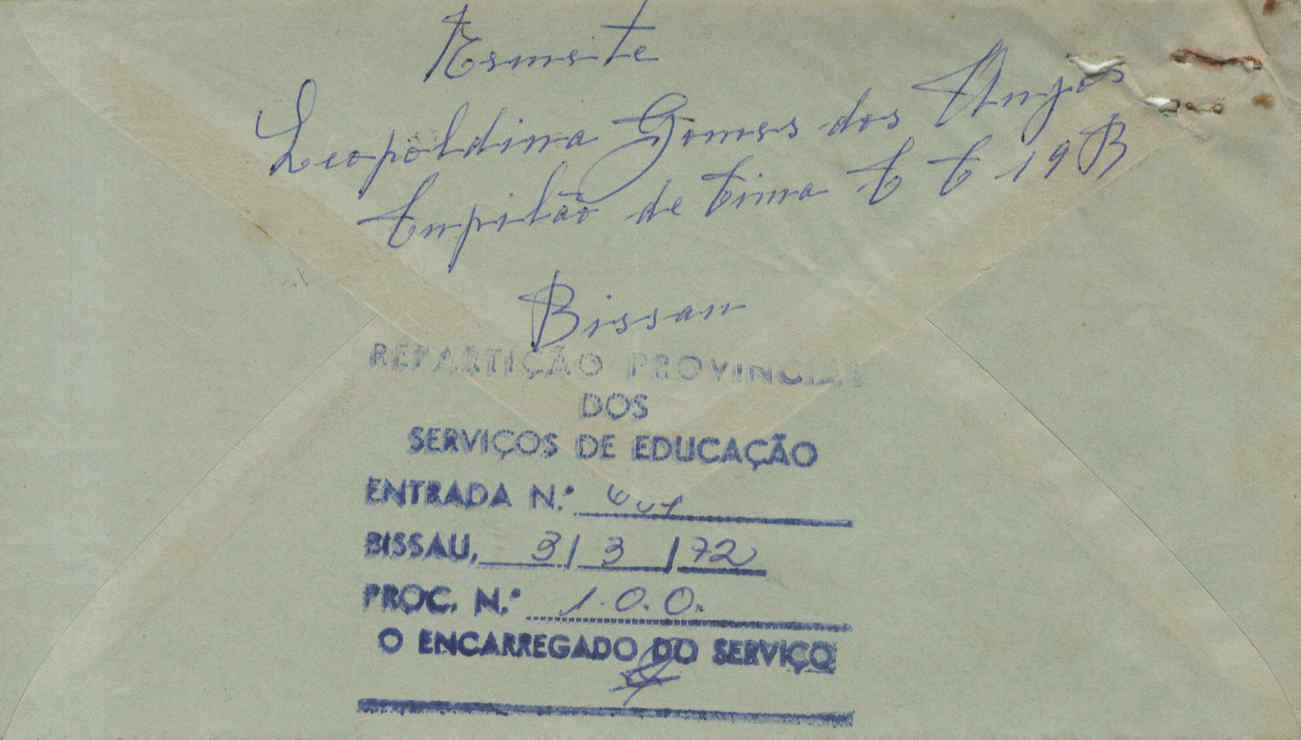 Remete
Leopoldina Gomes dos Anjos
Cupilão de Cima C C 19 B
Bissau
REPARTIÇÃO PROVINCIAL
DOS
SERVIÇOS DE EDUCAÇÃO
ENTRADA N.º
BISSAU, 3/3/72
PROC. N.º 1.0.0.
O ENCARREGADO DO SERVIÇO